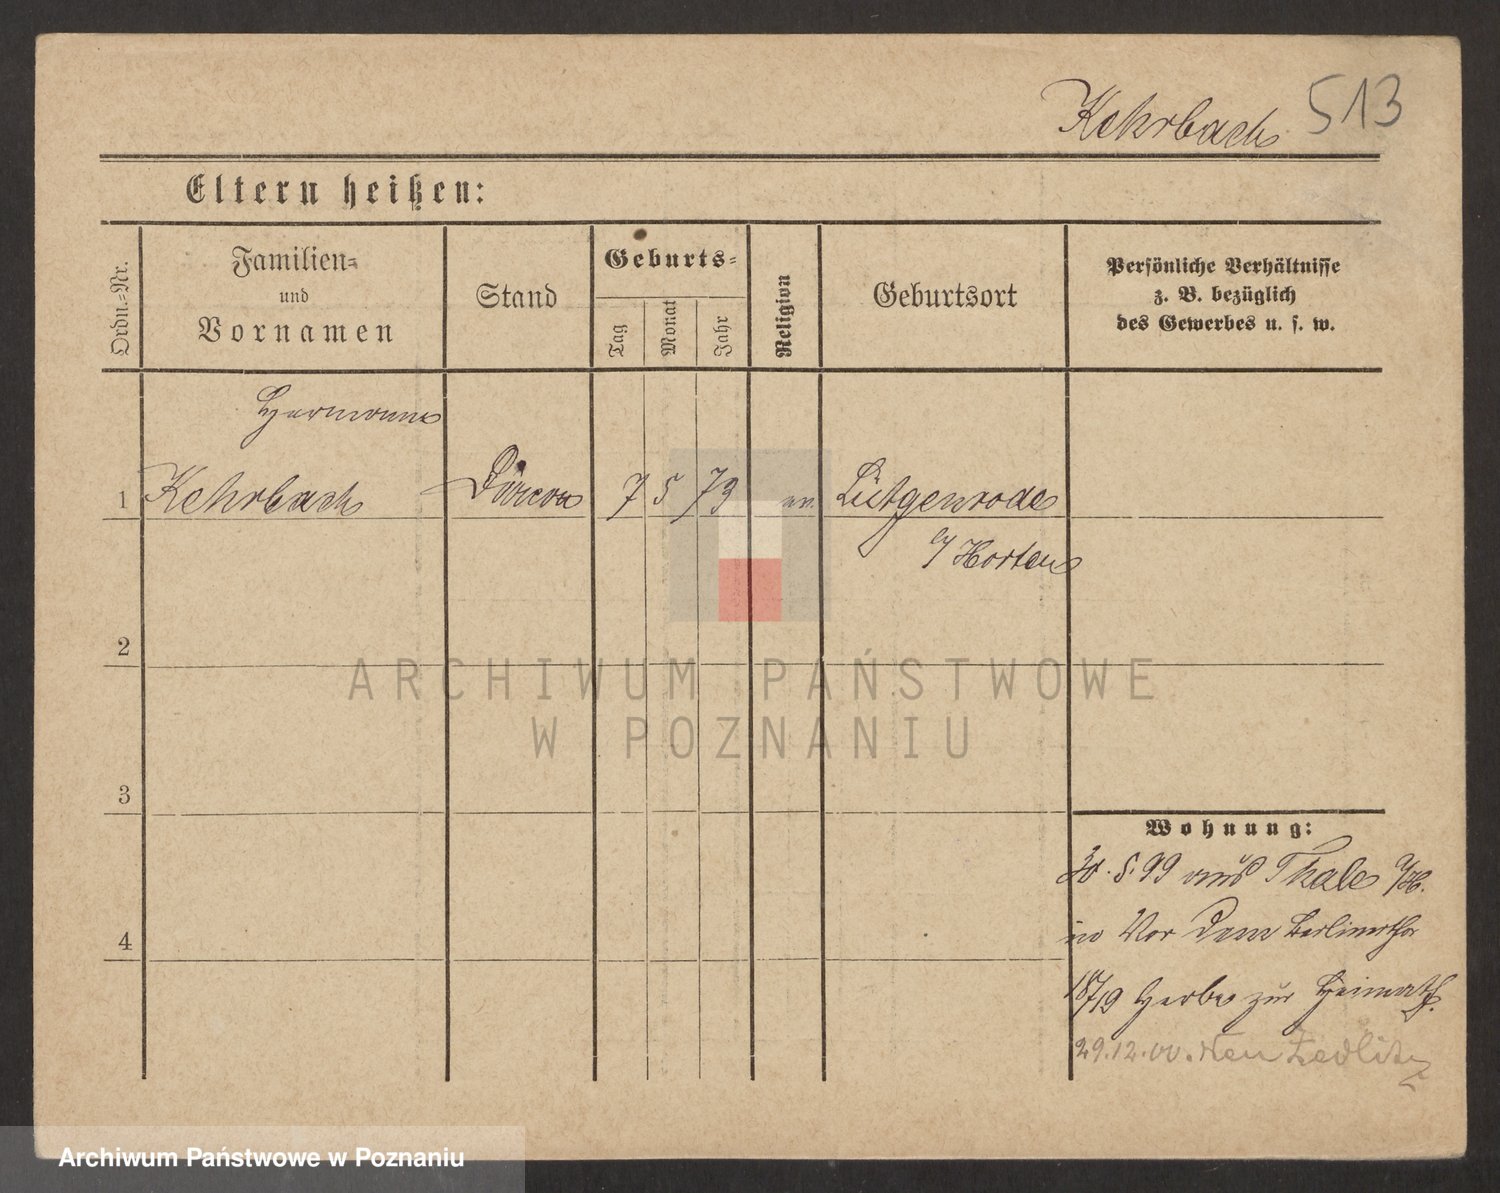 Kehrbach 513
Eltern heißen:
Ordn.=Nr.
Familien=
und
Vornamen
Stand
Geburts=
Tag
Monat
Jahr
Religion
Geburtsort
Persönliche Verhältnisse
z. B. bezüglich
des Gewerbes u. s. w.
Hermann
1 Kehrbach 7 5 73 ev. Lütgenrode
b/ Horten
2
3
4
Wohnung:
30.5.99 aus Thale a/H.
in Vor dem Berlinerthor
18/19 Herbe zur Heimath.
29.12.00. Neu Zedlitz
ARCHIWUM PAŃSTWOWE
W POZNANIU
Archiwum Państwowe w Poznaniu